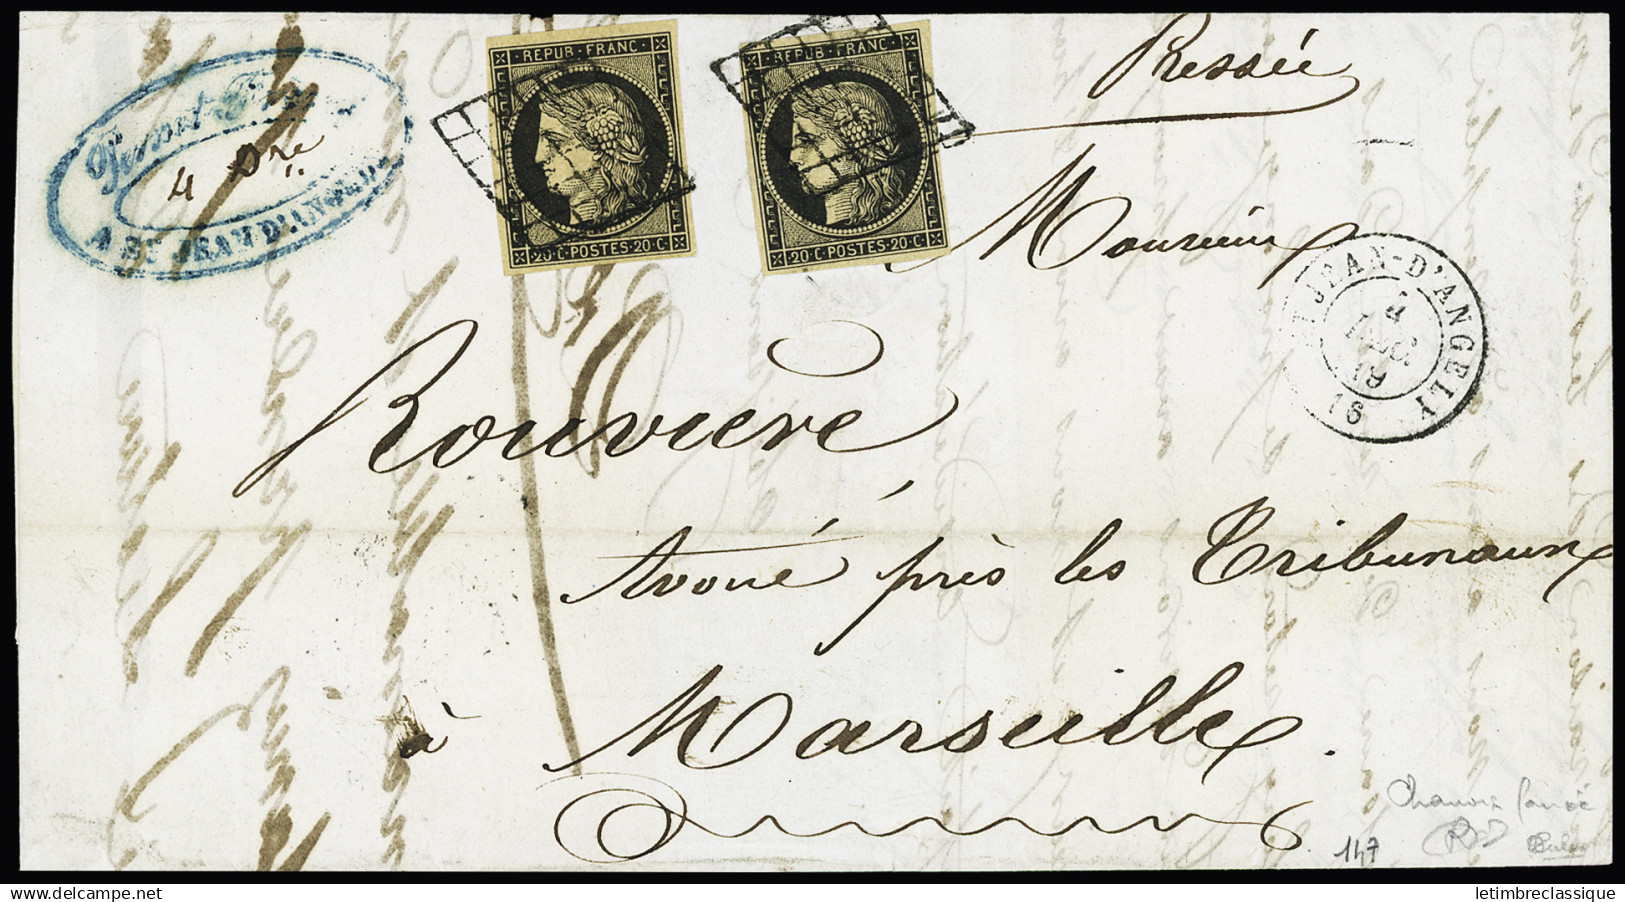 REPUB·FRANC·
20·C·POSTES·20·C·
REPUB·FRANC·
20·C·POSTES·20·C·
Pressée
4 Dre
A ST JEAN D'ANGELY
Monsieur
ST JEAN-D'ANGELY
4
DEC.
49
16
Rouvière
Avoué près les Tribunaux
à Marseille.
147
delcampe.net
letimbreclassique